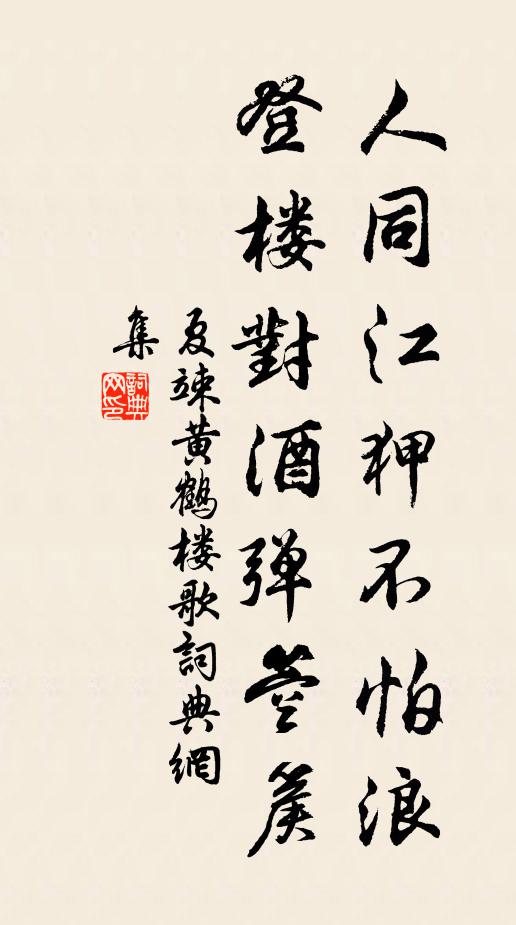 人同江狎不怕浪
登楼對酒弹箜篌
夏竦黄鶴楼歌詞典網
集
詞典
网印